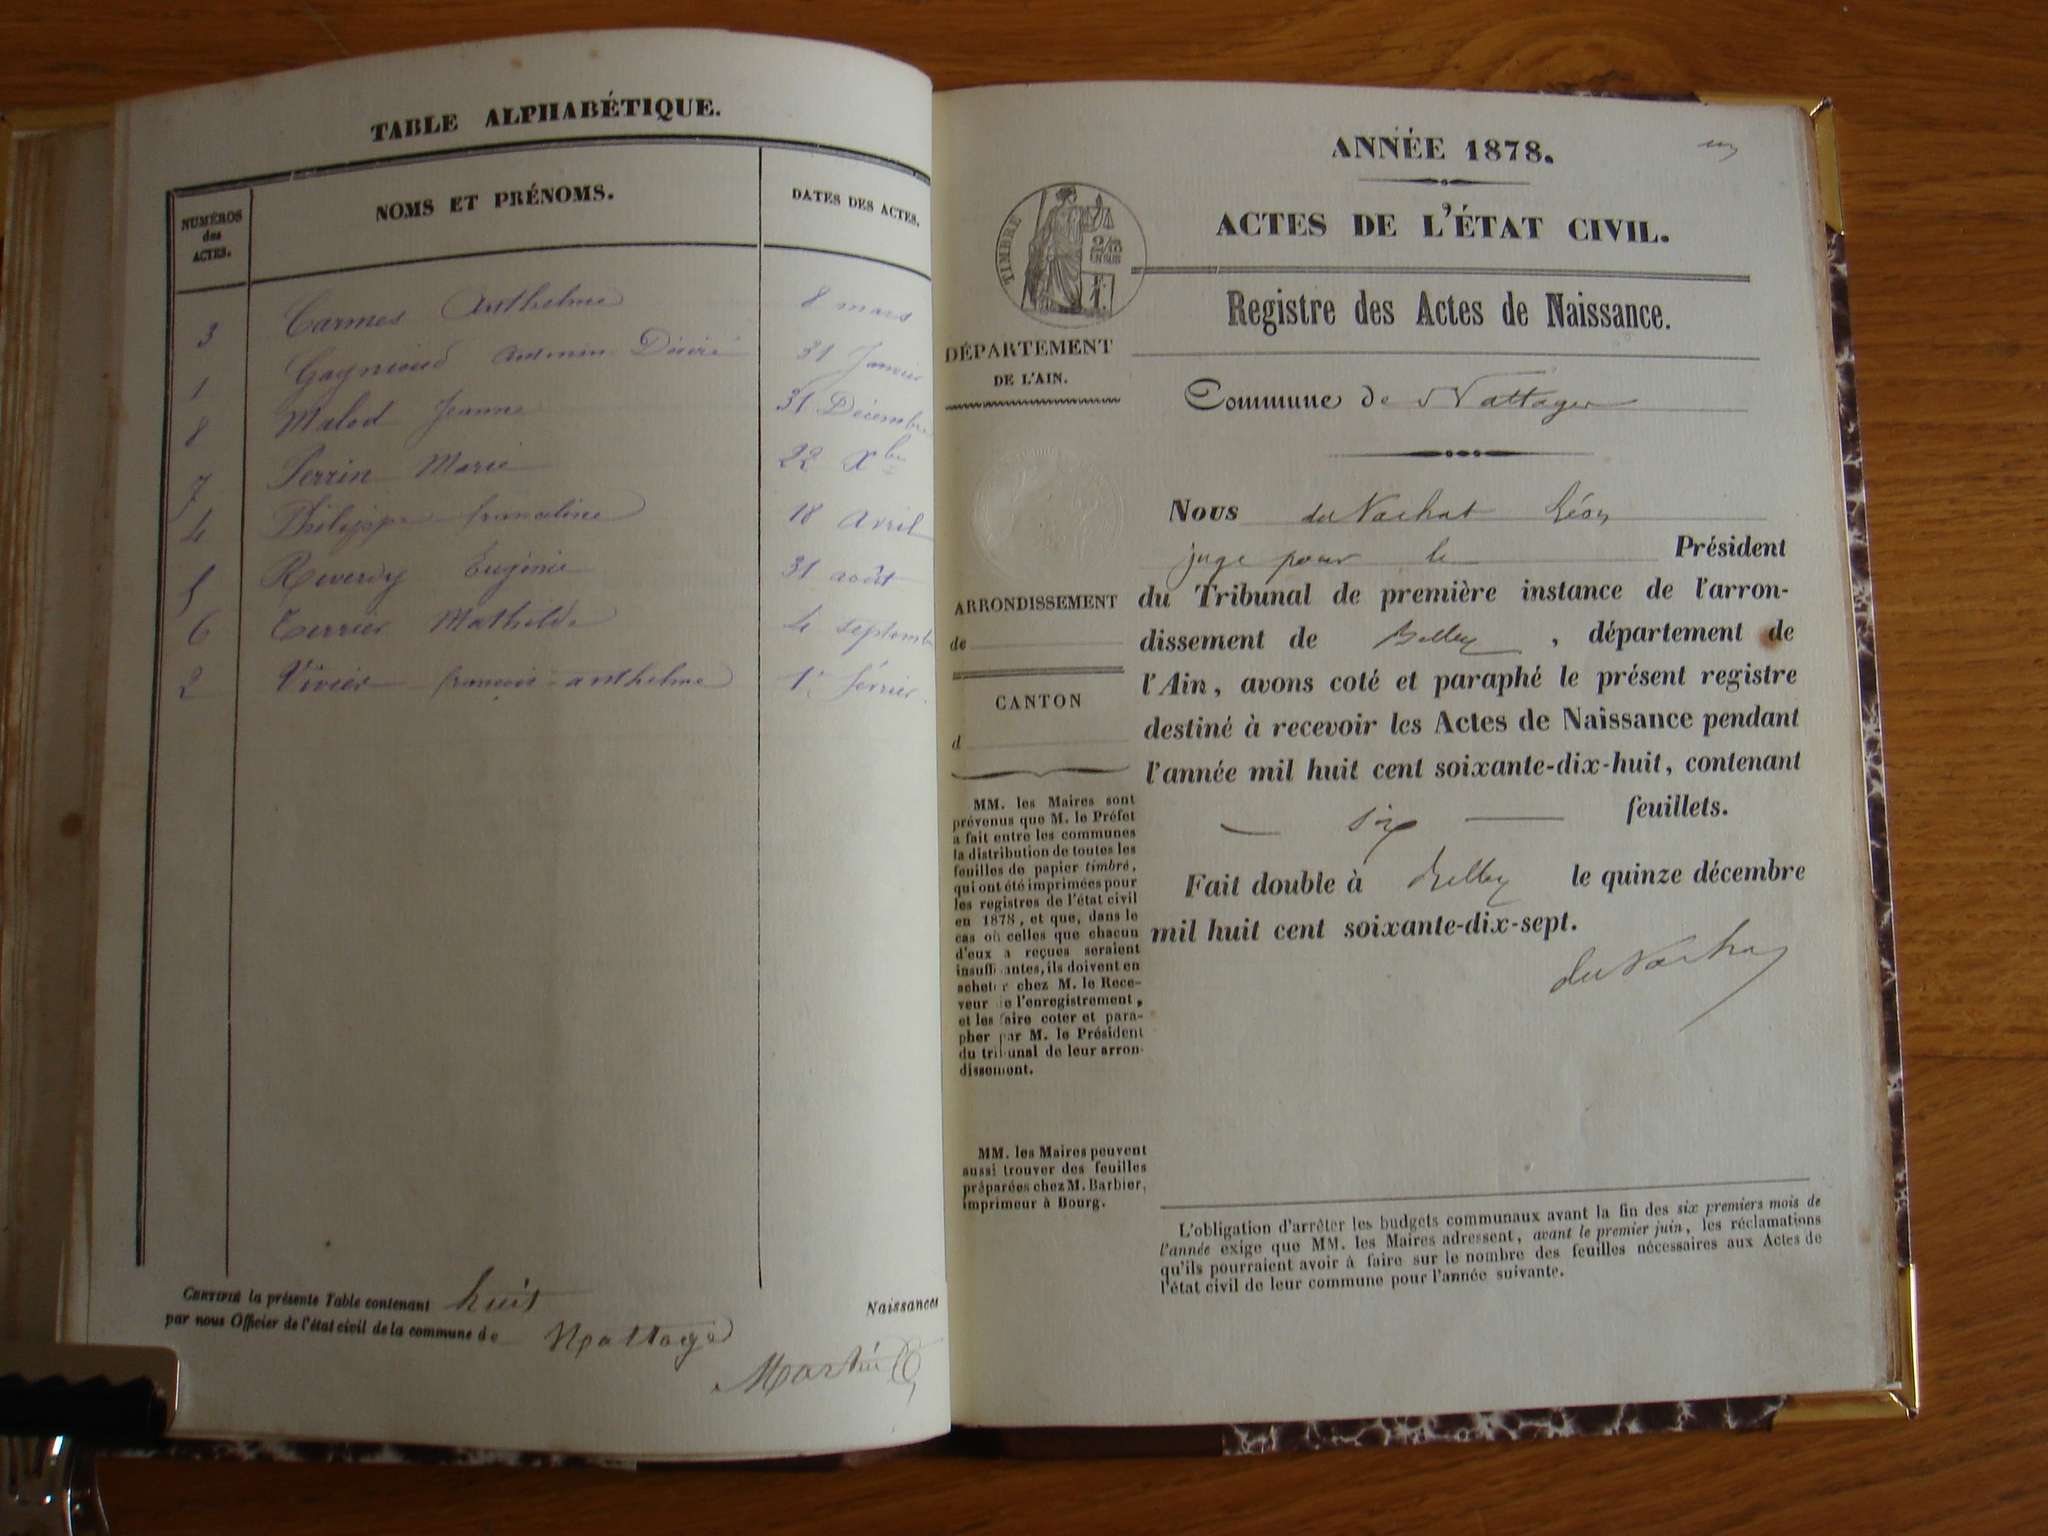 TABLE ALPHABÉTIQUE.
NUMÉROS des ACTES.
NOMS ET PRÉNOMS.
DATES DES ACTES.
3 Carmes Anthelme 8 mars
1 antonin Désiré 31 Janvier
8 Malod Jeanne 31 Décembre
7 Perrin Marie 22 Xbre
4 Philippe francéline 18 Avril
5 Reverdy Eugénie 31 août
6 Terrier Mathilde 4 septemb
2 Vivier françois-anthelme 1er février
CERTIFIÉ la présente Table contenant huit Naissances
par nous Officier de l'état civil de la commune de Nattage
Martin
ANNÉE 1878.
ACTES DE L'ÉTAT CIVIL.
TIMBRE
2/10 EN SUS
Registre des Actes de Naissance.
DÉPARTEMENT
DE L'AIN.
Commune de Nattages
Nous du Nachat Léon
juge pour le Président
du Tribunal de première instance de l'arron-
dissement de Belley, département de
l'Ain, avons coté et paraphé le présent registre
destiné à recevoir les Actes de Naissance pendant
l'année mil huit cent soixante-dix-huit, contenant
six feuillets.
Fait double à Belley le quinze décembre
mil huit cent soixante-dix-sept.
du Nachat
ARRONDISSEMENT
de
CANTON
d
MM. les Maires sont
prévenus que M. le Préfet
a fait entre les communes
la distribution de toutes les
feuilles de papier timbré,
qui ont été imprimées pour
les registres de l'état civil
en 1878, et que, dans le
cas où celles que chacun
d'eux a reçues seraient
insuffisantes, ils doivent en
acheter chez M. le Rece-
veur de l'enregistrement,
et les faire coter et para-
pher par M. le Président
du tribunal de leur arron-
dissement.
MM. les Maires peuvent
aussi trouver des feuilles
préparées chez M. Barbier,
imprimeur à Bourg.
L'obligation d'arrêter les budgets communaux avant la fin des six premiers mois de
l'année exige que MM. les Maires adressent, avant le premier juin, les réclamations
qu'ils pourraient avoir à faire sur le nombre des feuilles nécessaires aux Actes de
l'état civil de leur commune pour l'année suivante.